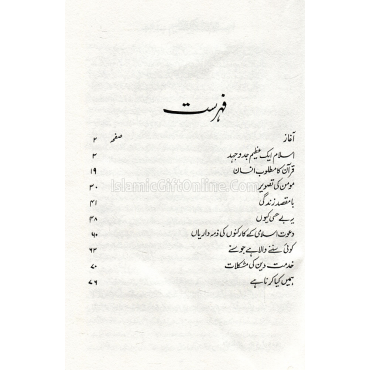 فہرست
آغاز صفحہ ۲
اسلام ایک عظیم جدوجہد ۳
قرآن کا مطلوب انسان ۱۹
مومن کی تصویر ۳۰
بامقصد زندگی ۴۱
یہ بے حسی کیوں ۴۸
دعوت اسلامی کے کارکنوں کی ذمہ داریاں ۶۰
کوئی سننے والا ہے جو سنے ۶۳
خدمت دین کی مشکلات ۷۰
ہمیں کیا کرنا ہے ۷۶
IslamicGiftOnline.Com